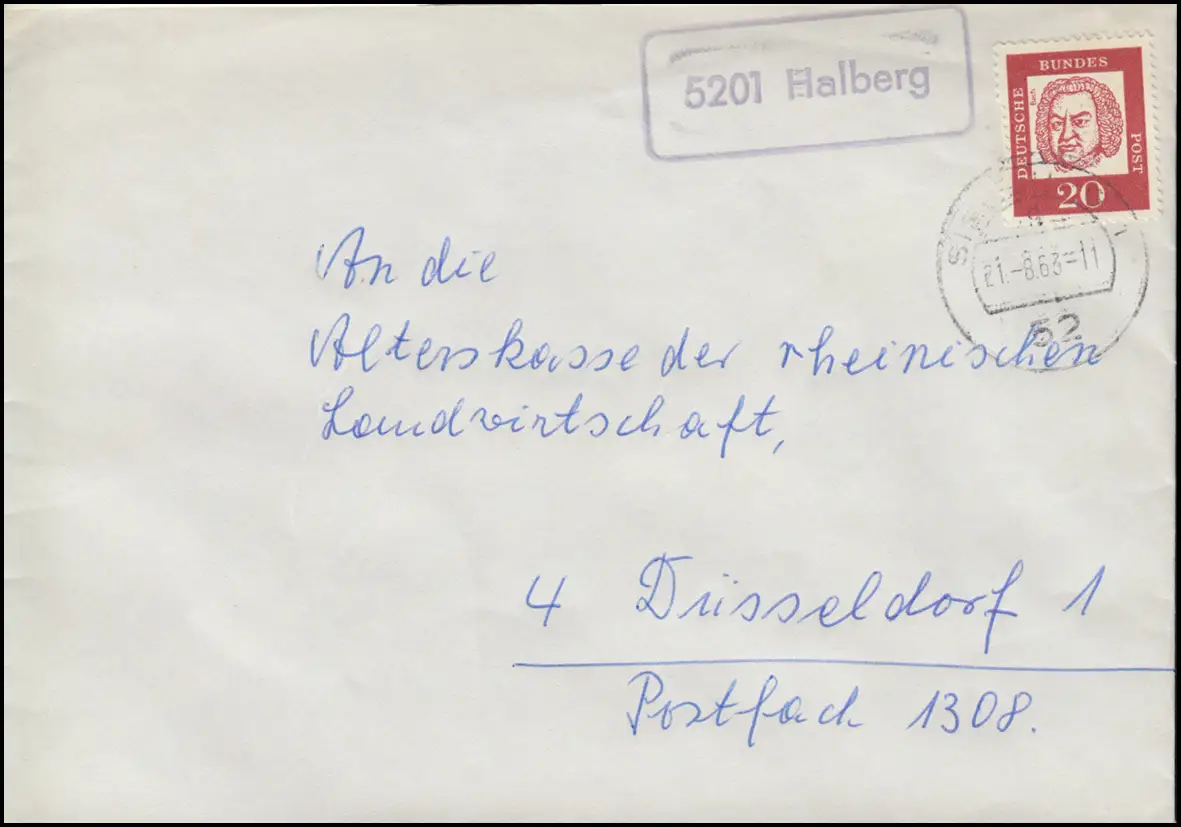 5201 Halberg
DEUTSCHE
BUNDES
POST
Bach
20
21.-8.63-11
52
An die
Alterskasse der rheinischen
Landwirtschaft,
4 Düsseldorf 1
Postfach 1308.